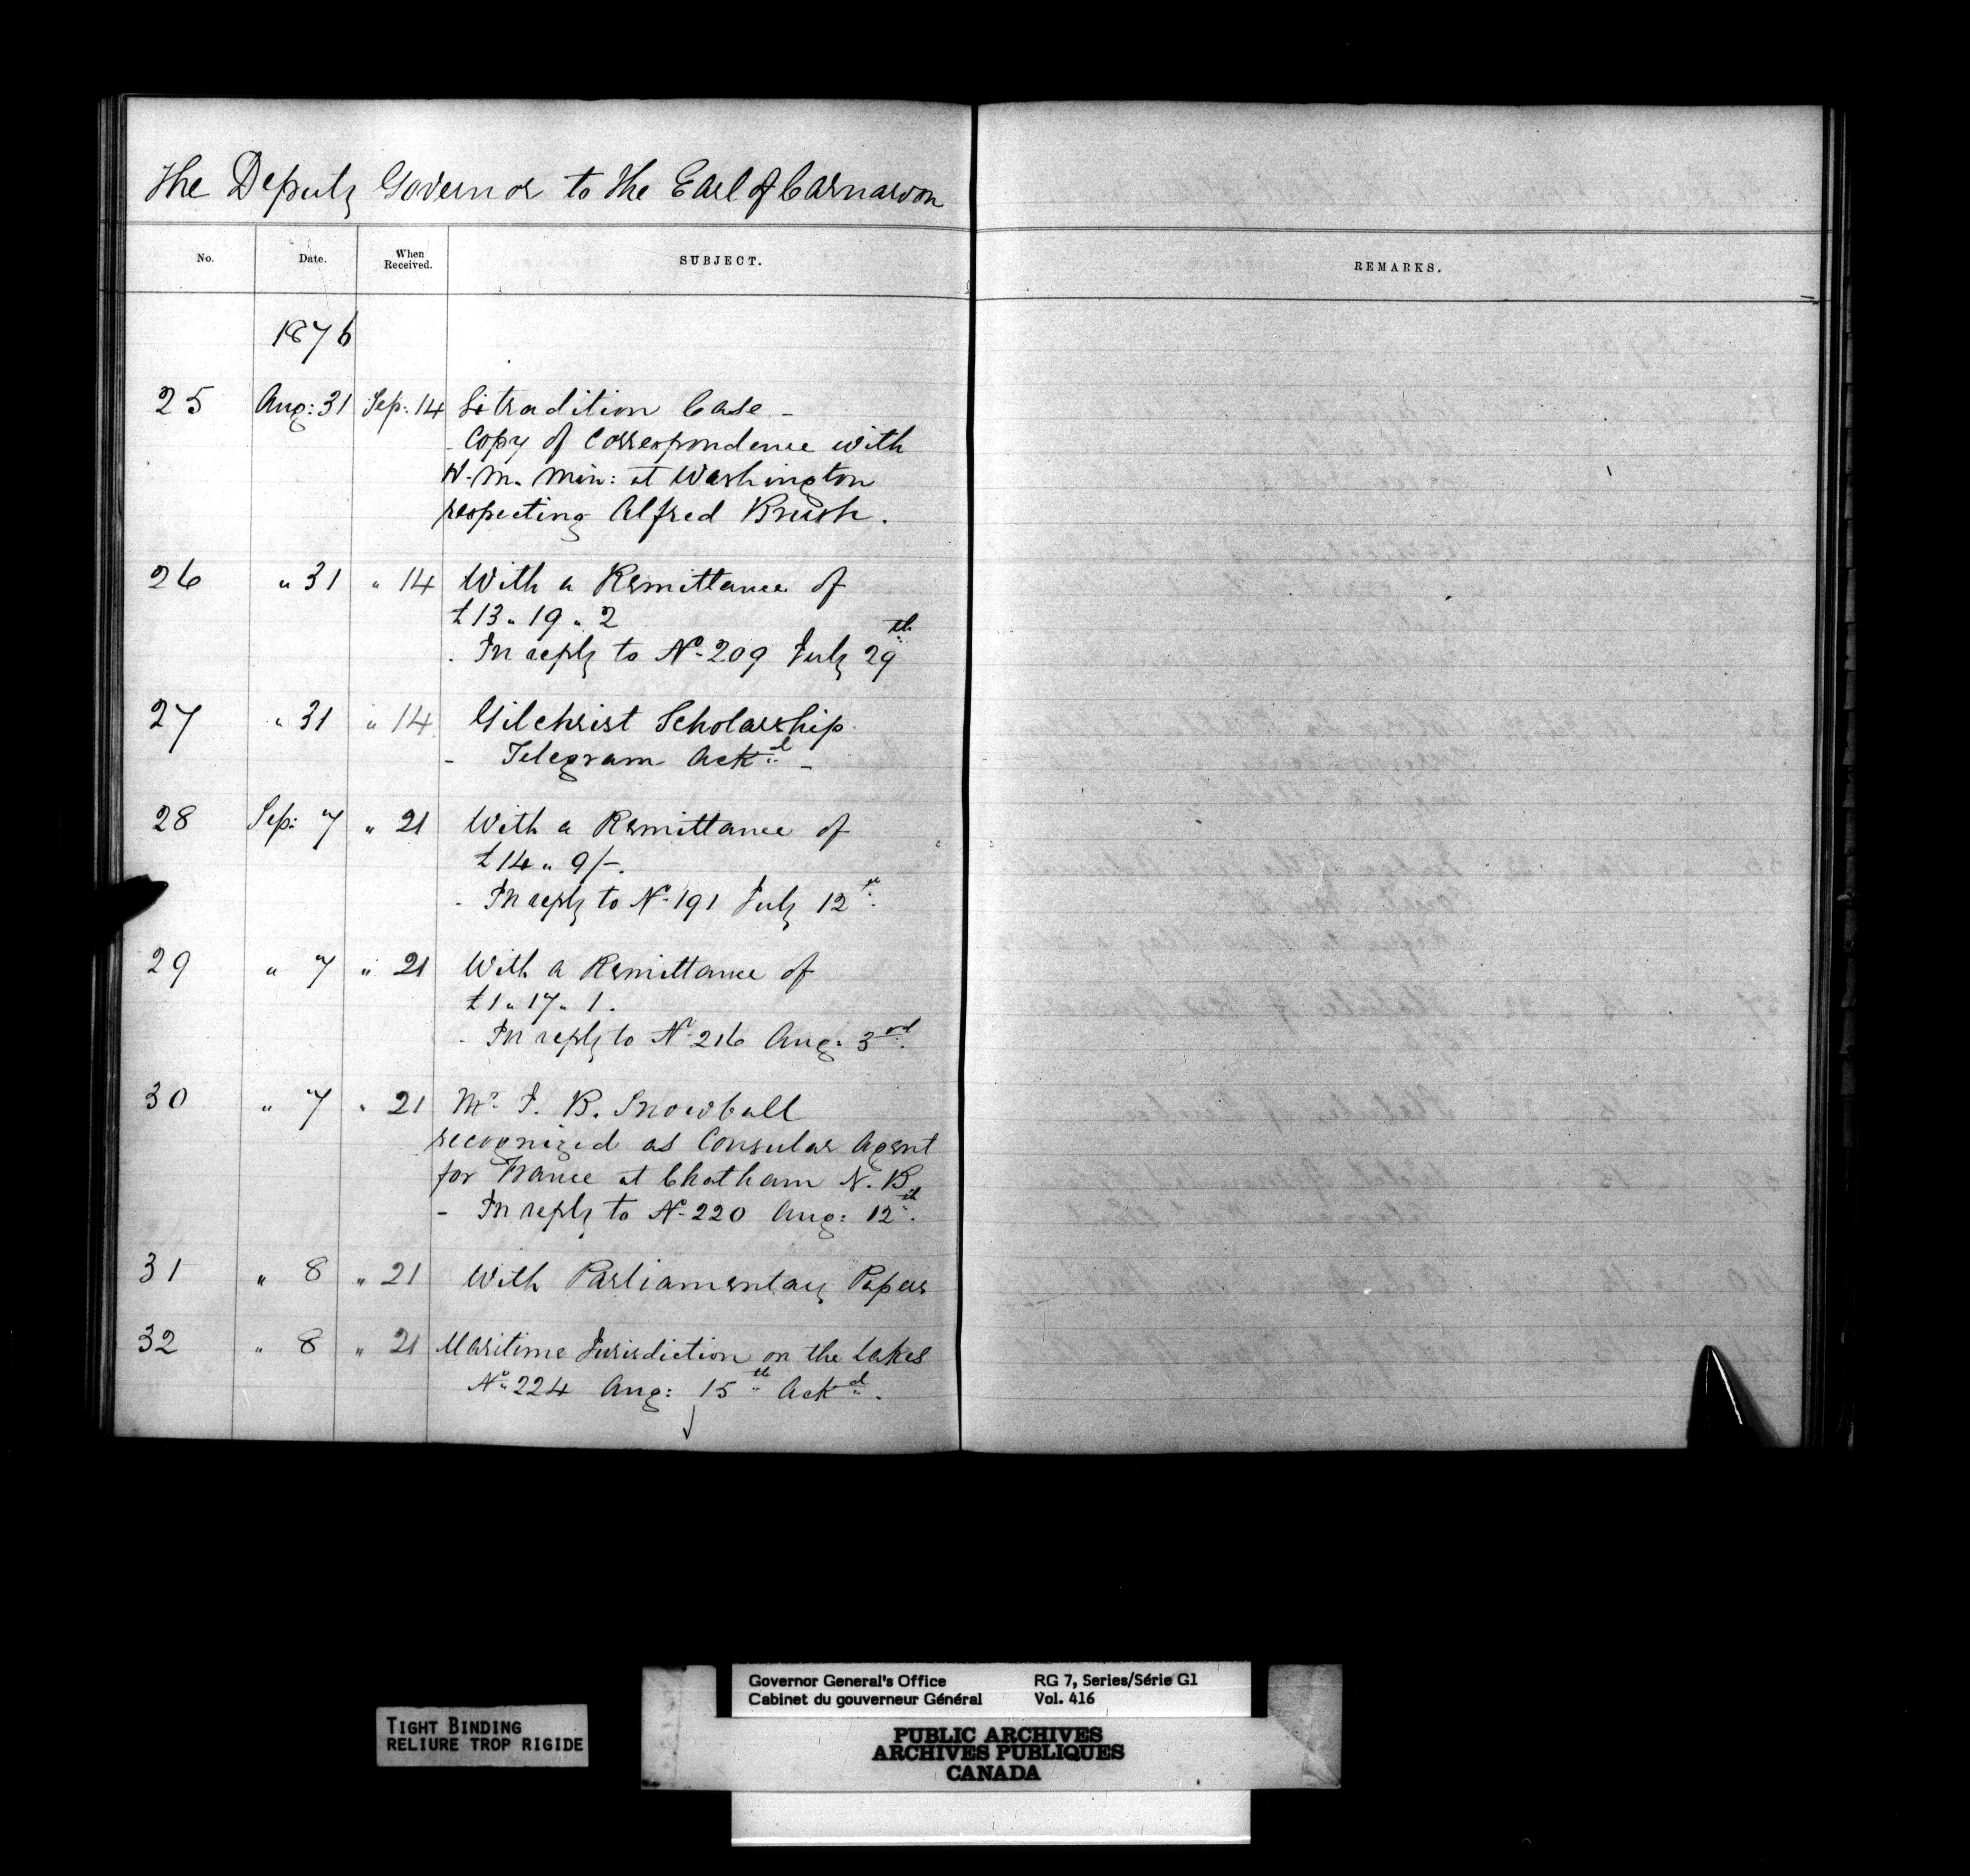 The Deputy Governor to the Earl of Carnarvon
No. Date. When Received. SUBJECT. REMARKS.
1876
25 Aug: 31 Sep: 14 Extradition Case -
- Copy of Correspondence with
H. M. Min: at Washington
respecting Alfred Brush.
26 " 31 " 14 With a Remittance of
£13 " 19 " 2
- In reply to No. 209 July 29th
27 " 31 " 14 Gilchrist Scholarship
- Telegram Ackd -
28 Sep: 7 " 21 With a Remittance of
£14 " 9/-.
- In reply to No. 191 July 12th.
29 " 7 " 21 With a Remittance of
£1 " 17 " 1.
- In reply to No. 216 Aug: 3rd.
30 " 7 " 21 Mr. J. B. Snowball
recognized as Consular Agent
for France at Chatham N. B.
- In reply to No. 220 Aug: 12th.
31 " 8 " 21 With Parliamentary Papers
32 " 8 " 21 Maritime Jurisdiction on the Lakes
No. 224 Aug: 15th Ackd.
TIGHT BINDING
RELIURE TROP RIGIDE
Governor General's Office RG 7, Series/Série G1
Cabinet du gouverneur Général Vol. 416
PUBLIC ARCHIVES
ARCHIVES PUBLIQUES
CANADA